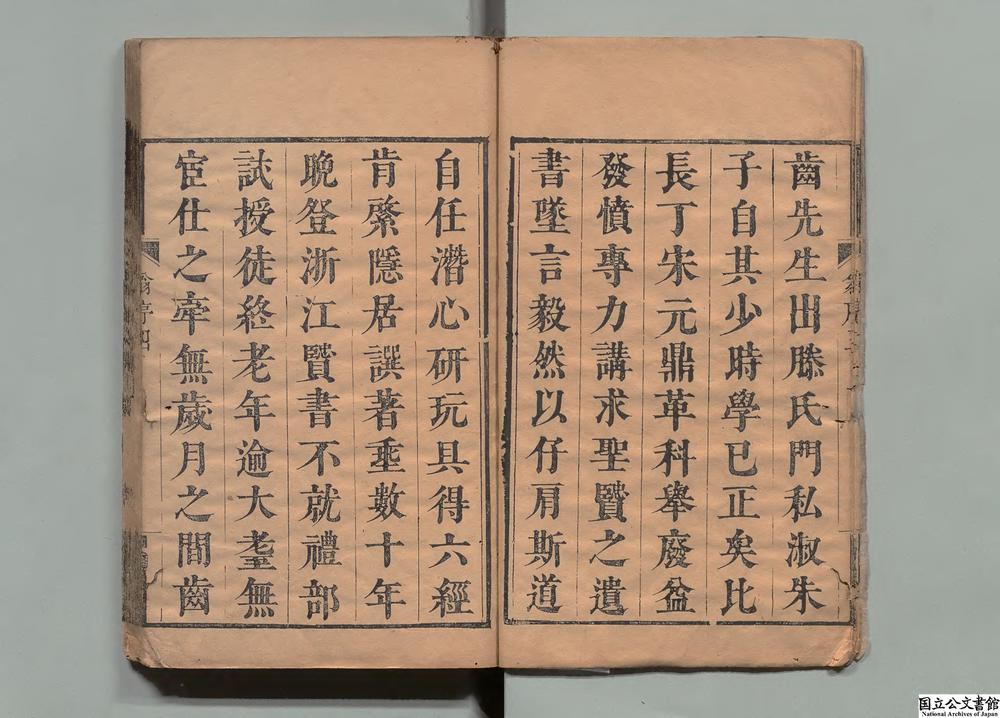 齒先生出滕氏門私淑朱
子自其少時學已正矣比
長丁宋元鼎革科舉廢益
發憤專力講求聖賢之遺
書墜言毅然以仔肩斯道
自任潛心研玩具得六經
肯綮隱居譔著垂數十年
晩登浙江賢書不就禮部
試授徒終老年逾大耋無
宦仕之牽無歲月之間齒
翁序四
国立公文書館
National Archives of Japan